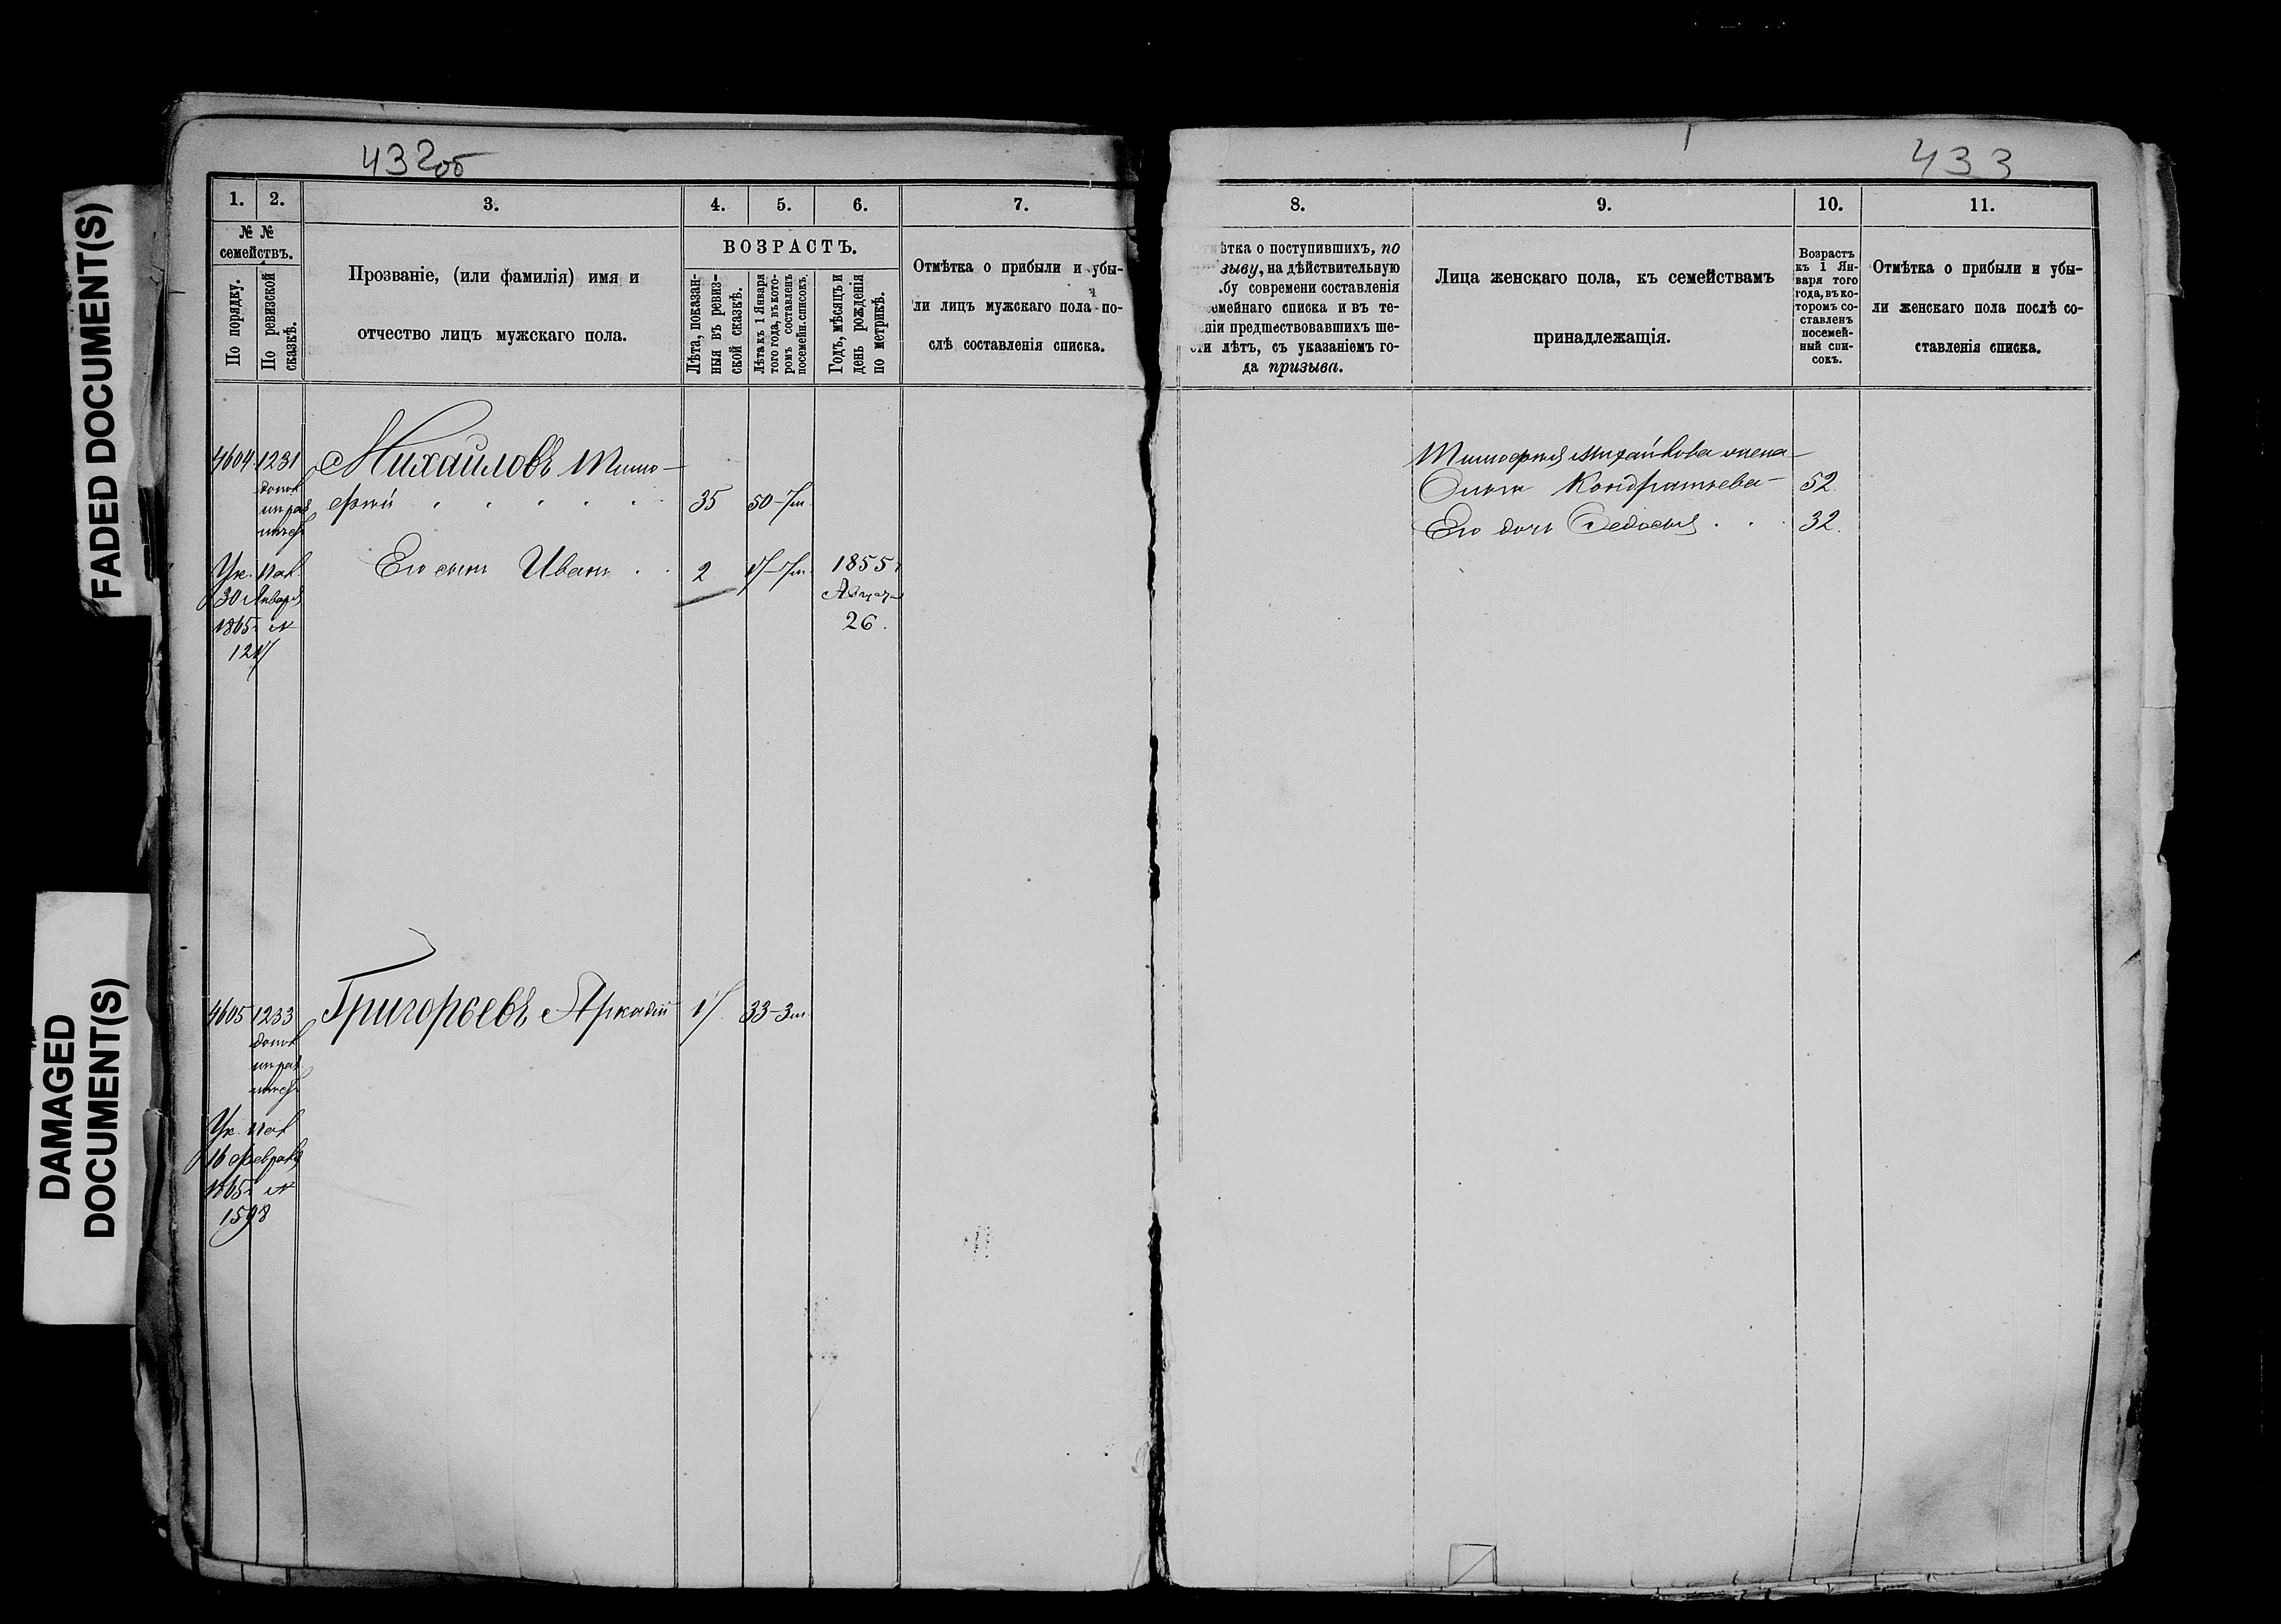 FADED DOCUMENT(S)
DAMAGED
DOCUMENT(S)
432об
1. 2. 3. 4. 5. 6. 7.
№ №
семействъ.
По порядку.
По ревизской
сказкѣ.
Прозваніе, (или фамилія) имя и
отчество лицъ мужскаго пола.
ВОЗРАСТЪ.
Лѣта, показан-
ныя въ ревиз-
ской сказкѣ.
Лѣта къ 1 Января
того года, въ кото-
ромъ составленъ
посемейн. списокъ.
Годъ, мѣсяцъ и
день рожденія
по метрикѣ.
Отмѣтка о прибыли и убы-
ли лицъ мужскаго пола по-
слѣ составленія списка.
4604 1231 Михайловъ Тимо-
фей 35 50-7м
Его сынъ Иванъ 2 17-7м 1855г
Август
26.
Ук. Пал.
30 Января
1865г №
1217
4605 1233 Григорьевъ Аркадій 17 33-3м
Ук. Пал
16 февраля
1865г №
1598
433
8. 9. 10. 11.
мѣтка о поступившихъ, по
зыву, на дѣйствительную
бу современи составленія
емейнаго списка и въ те-
ніи предшествовавшихъ ше-
сти лѣтъ, съ указаніемъ го-
да призыва.
Лица женскаго пола, къ семействамъ
принадлежащія.
Возрастъ
къ 1 Ян-
варя того
года, въ ко-
торомъ со-
ставленъ
посемей-
ный спи-
сокъ.
Отмѣтка о прибыли и убы-
ли женскаго пола послѣ со-
ставленія списка.
Тимофея Михайлова жена
Кондратьева 52
Его дочь Федосья 32.